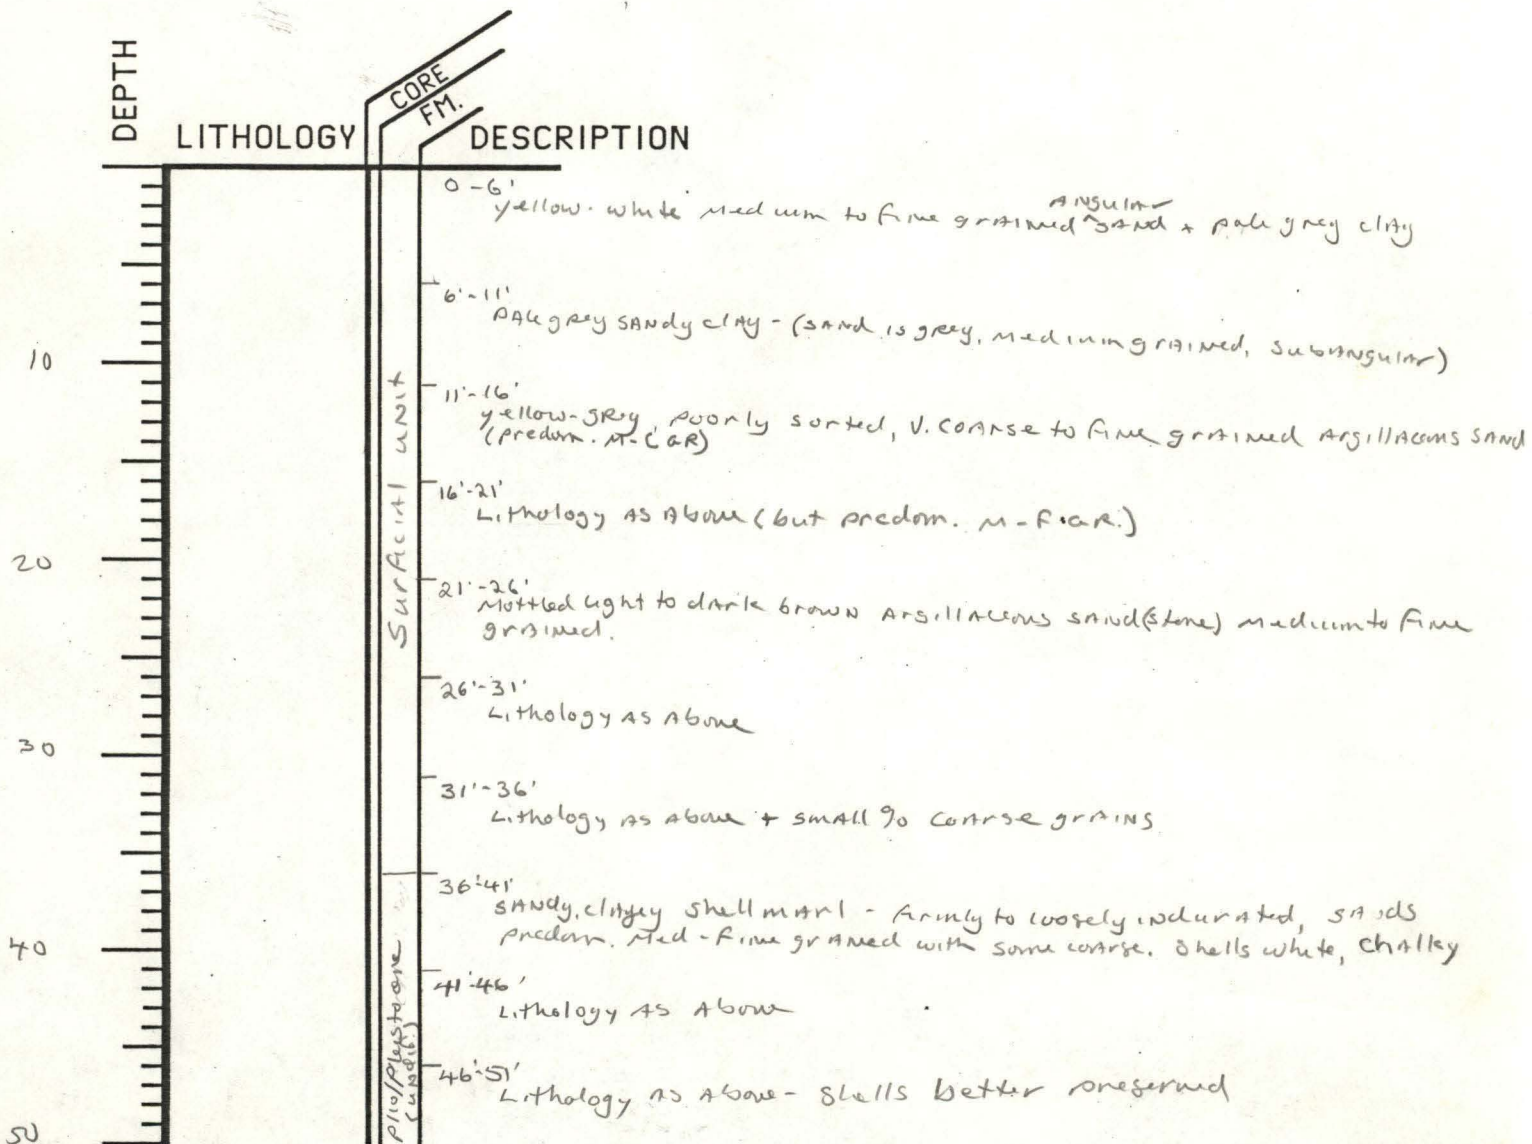 DEPTH
LITHOLOGY
CORE
FM.
DESCRIPTION
0-6'
yellow-white medium to fine grained ^angular sand + pale grey clay
6'-11'
pale grey sandy clay - (sand is grey, medium grained, subangular)
10
11'-16'
yellow-grey, poorly sorted, V. coarse to fine grained argillaceous sand
(predom. M-C GR)
16'-21'
Lithology as above (but predom. M-F.GR.)
20
21'-26'
Mottled light to dark brown argillaceous sand(stone) medium to fine
grained.
26'-31'
Lithology as above
30
31'-36'
Lithology as above + small % coarse grains
Surficial unit
36'-41'
Sandy, clayey shell marl - firmly to loosely indurated, sands
predom. Med-fine grained with some coarse. Shells white, chalky
40
41'-46'
Lithology as above
46'-51'
Lithology as above - shells better preserved
Plio/Pleistocene
(undif.)
50